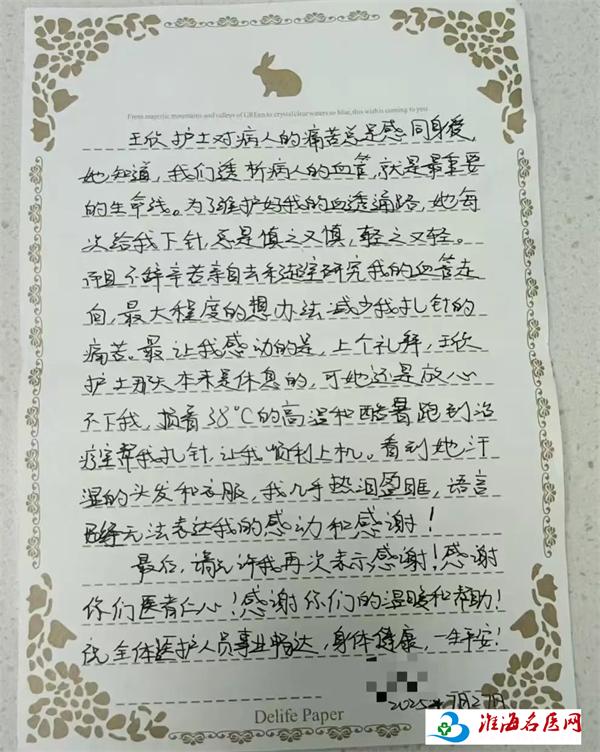 From majestic mountains and valleys of GREen to crystal clear waters so blue, this wish is coming to you
王欣护士对病人的痛苦总是感同身受,
她知道,我们透析病人的血管,就是最重要
的生命线。为了维护好我的血透通路,她每
次给我下针总是慎之又慎,轻之又轻。
而且不辞辛苦亲自去彩超室研究我的血管走
向,最大程度的想办法减少我扎针的
痛苦。最让我感动的是,上个礼拜,王欣
护士那天本来是休息的,可她还是放心
不下我,顶着38℃的高温和酷暑跑到治
疗室帮我扎针,让我顺利上机。看到她汗
湿的头发和衣服,我几乎热泪盈眶,语言
已经无法表达我的感动和感谢!
最后,请允许我再次表示感谢!感谢
你们医者仁心!感谢你们的温暖和帮助!
祝全体医护人员事业畅达,身体健康,一生平安!
2025年7月27日
Delife Paper
淮海名医网